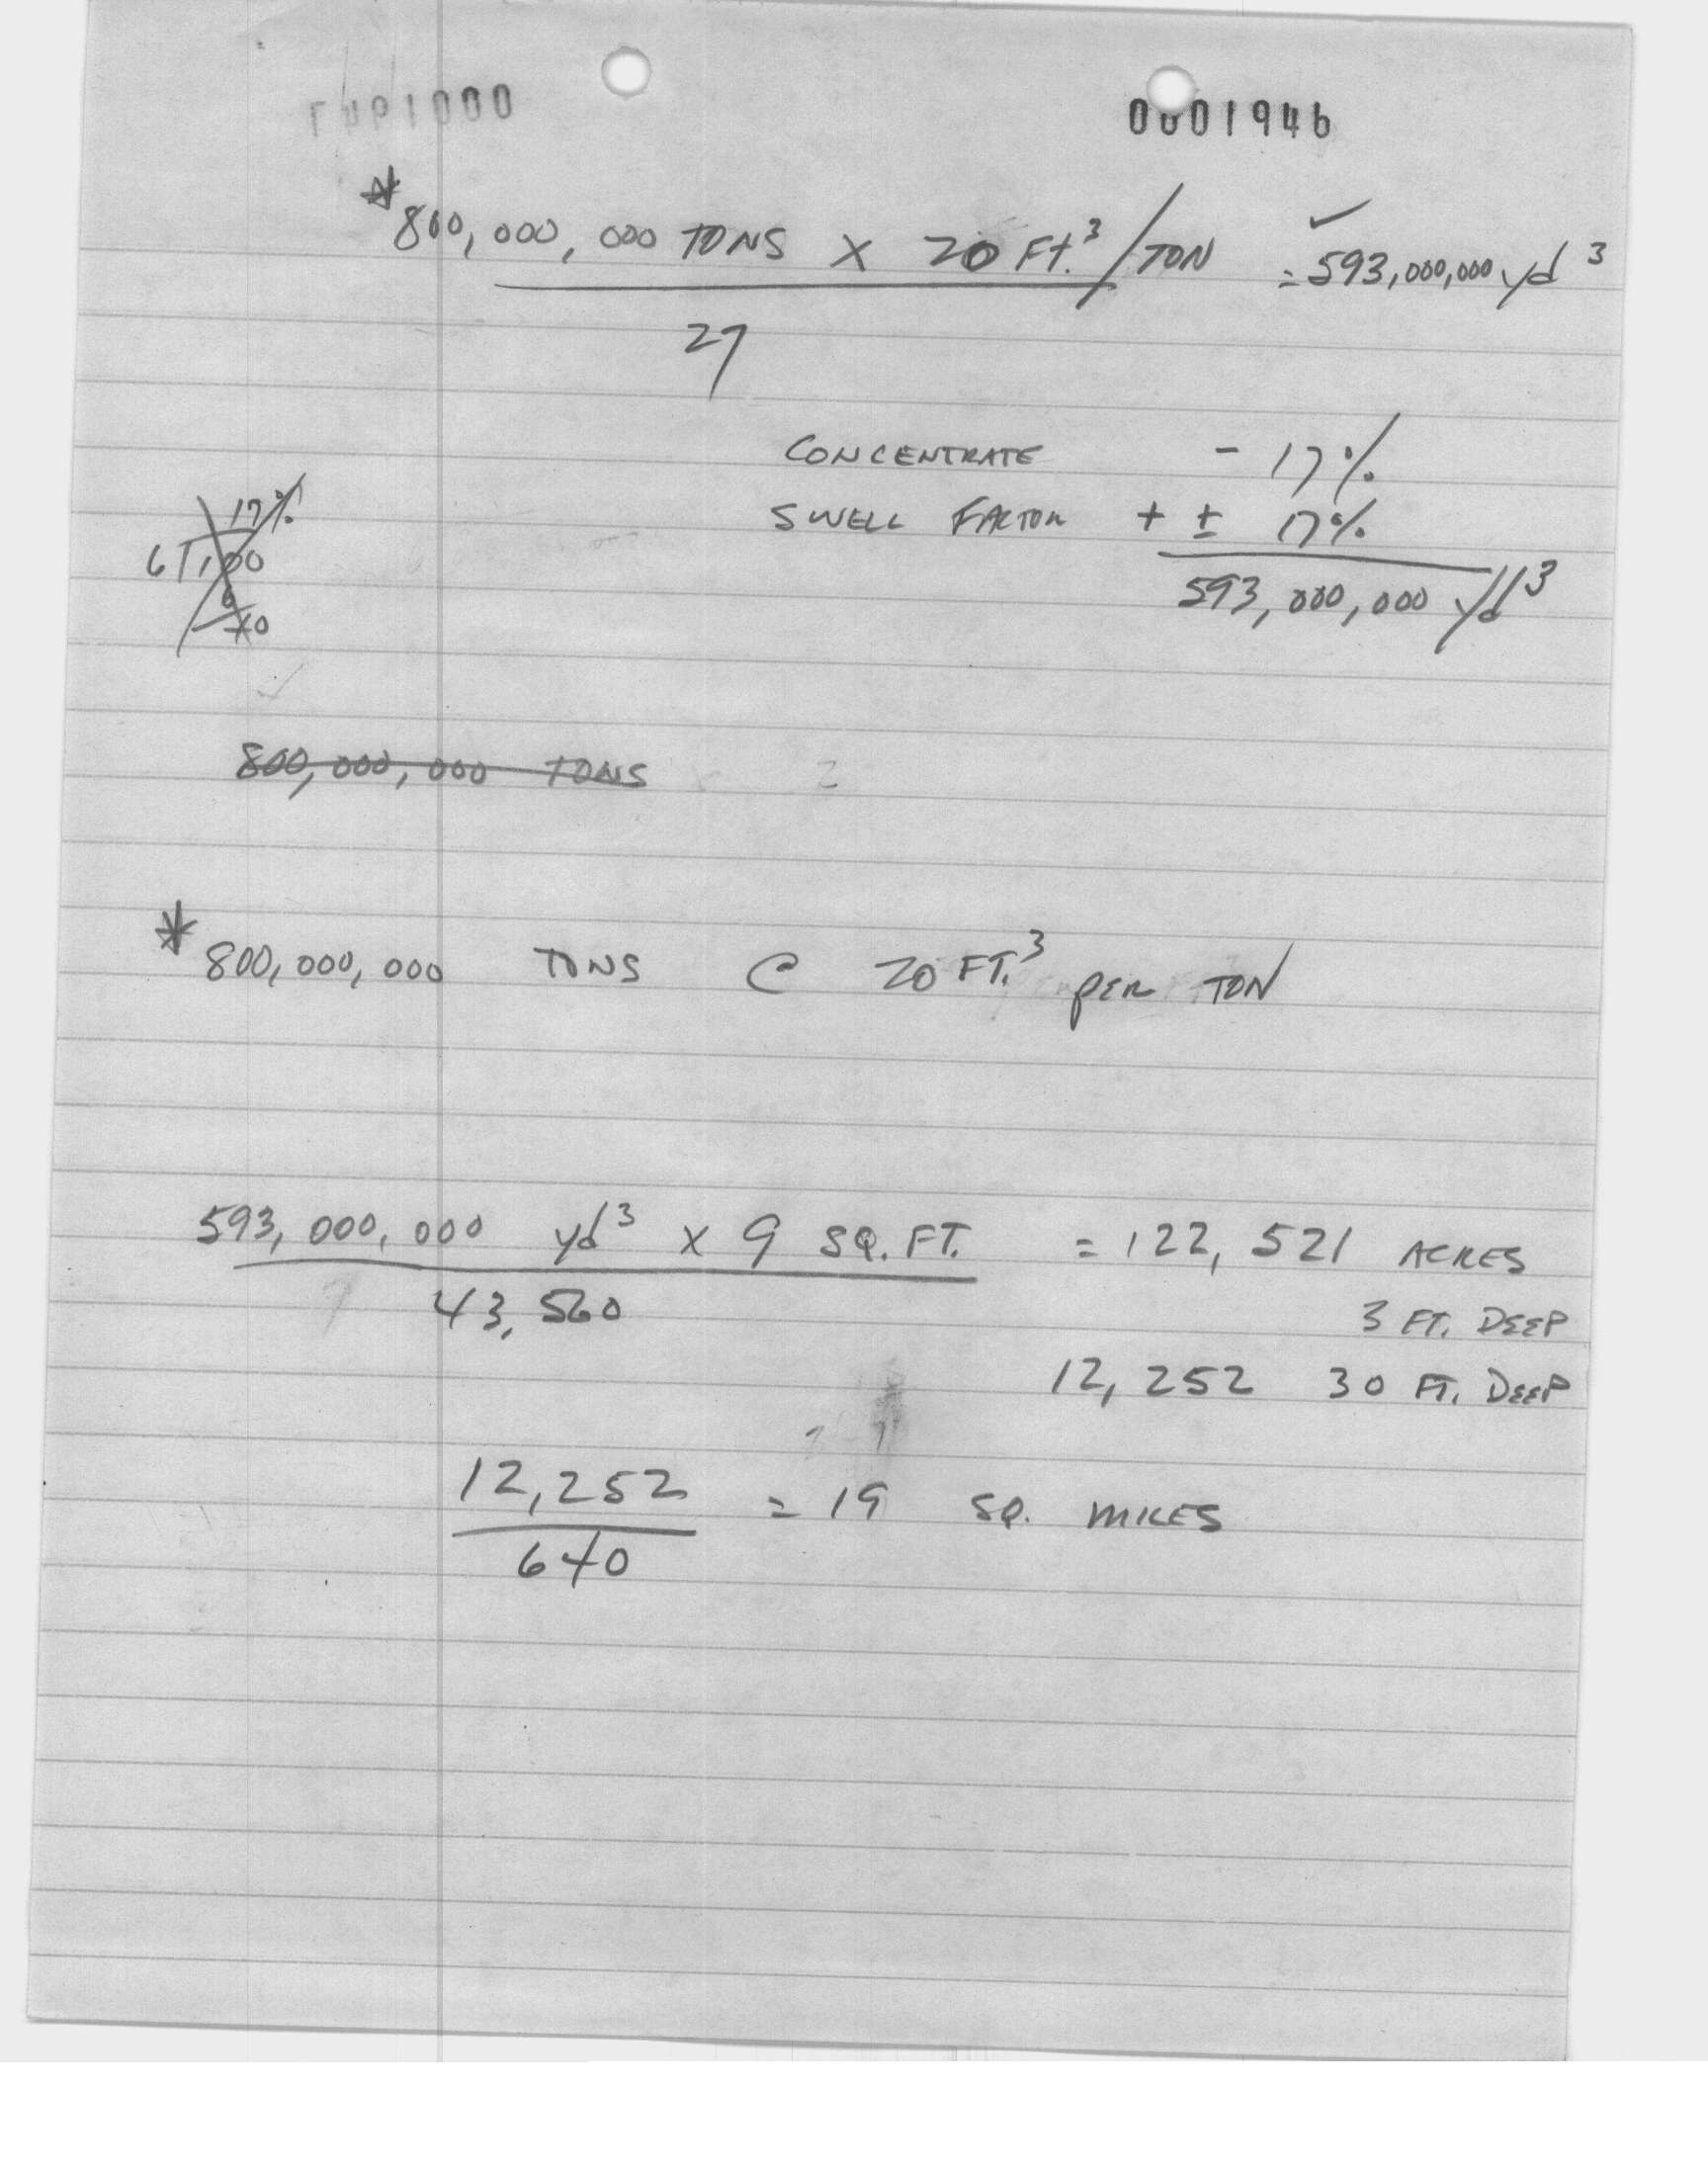 0001946
*800,000,000 TONS X 20 Ft.³/TON = 593,000,000 yd³
27
CONCENTRATE - 17%
SWELL FACTOR + ± 17%
593,000,000 yd³
17%
6 1.00
6
40
800,000,000 TONS
* 800,000,000 TONS @ 20 FT.³ PER TON
593,000,000 yd³ X 9 SQ. FT. = 122,521 ACRES
43,560
3 FT. DEEP
12,252 30 FT. DEEP
12,252 = 19 SQ. MILES
640